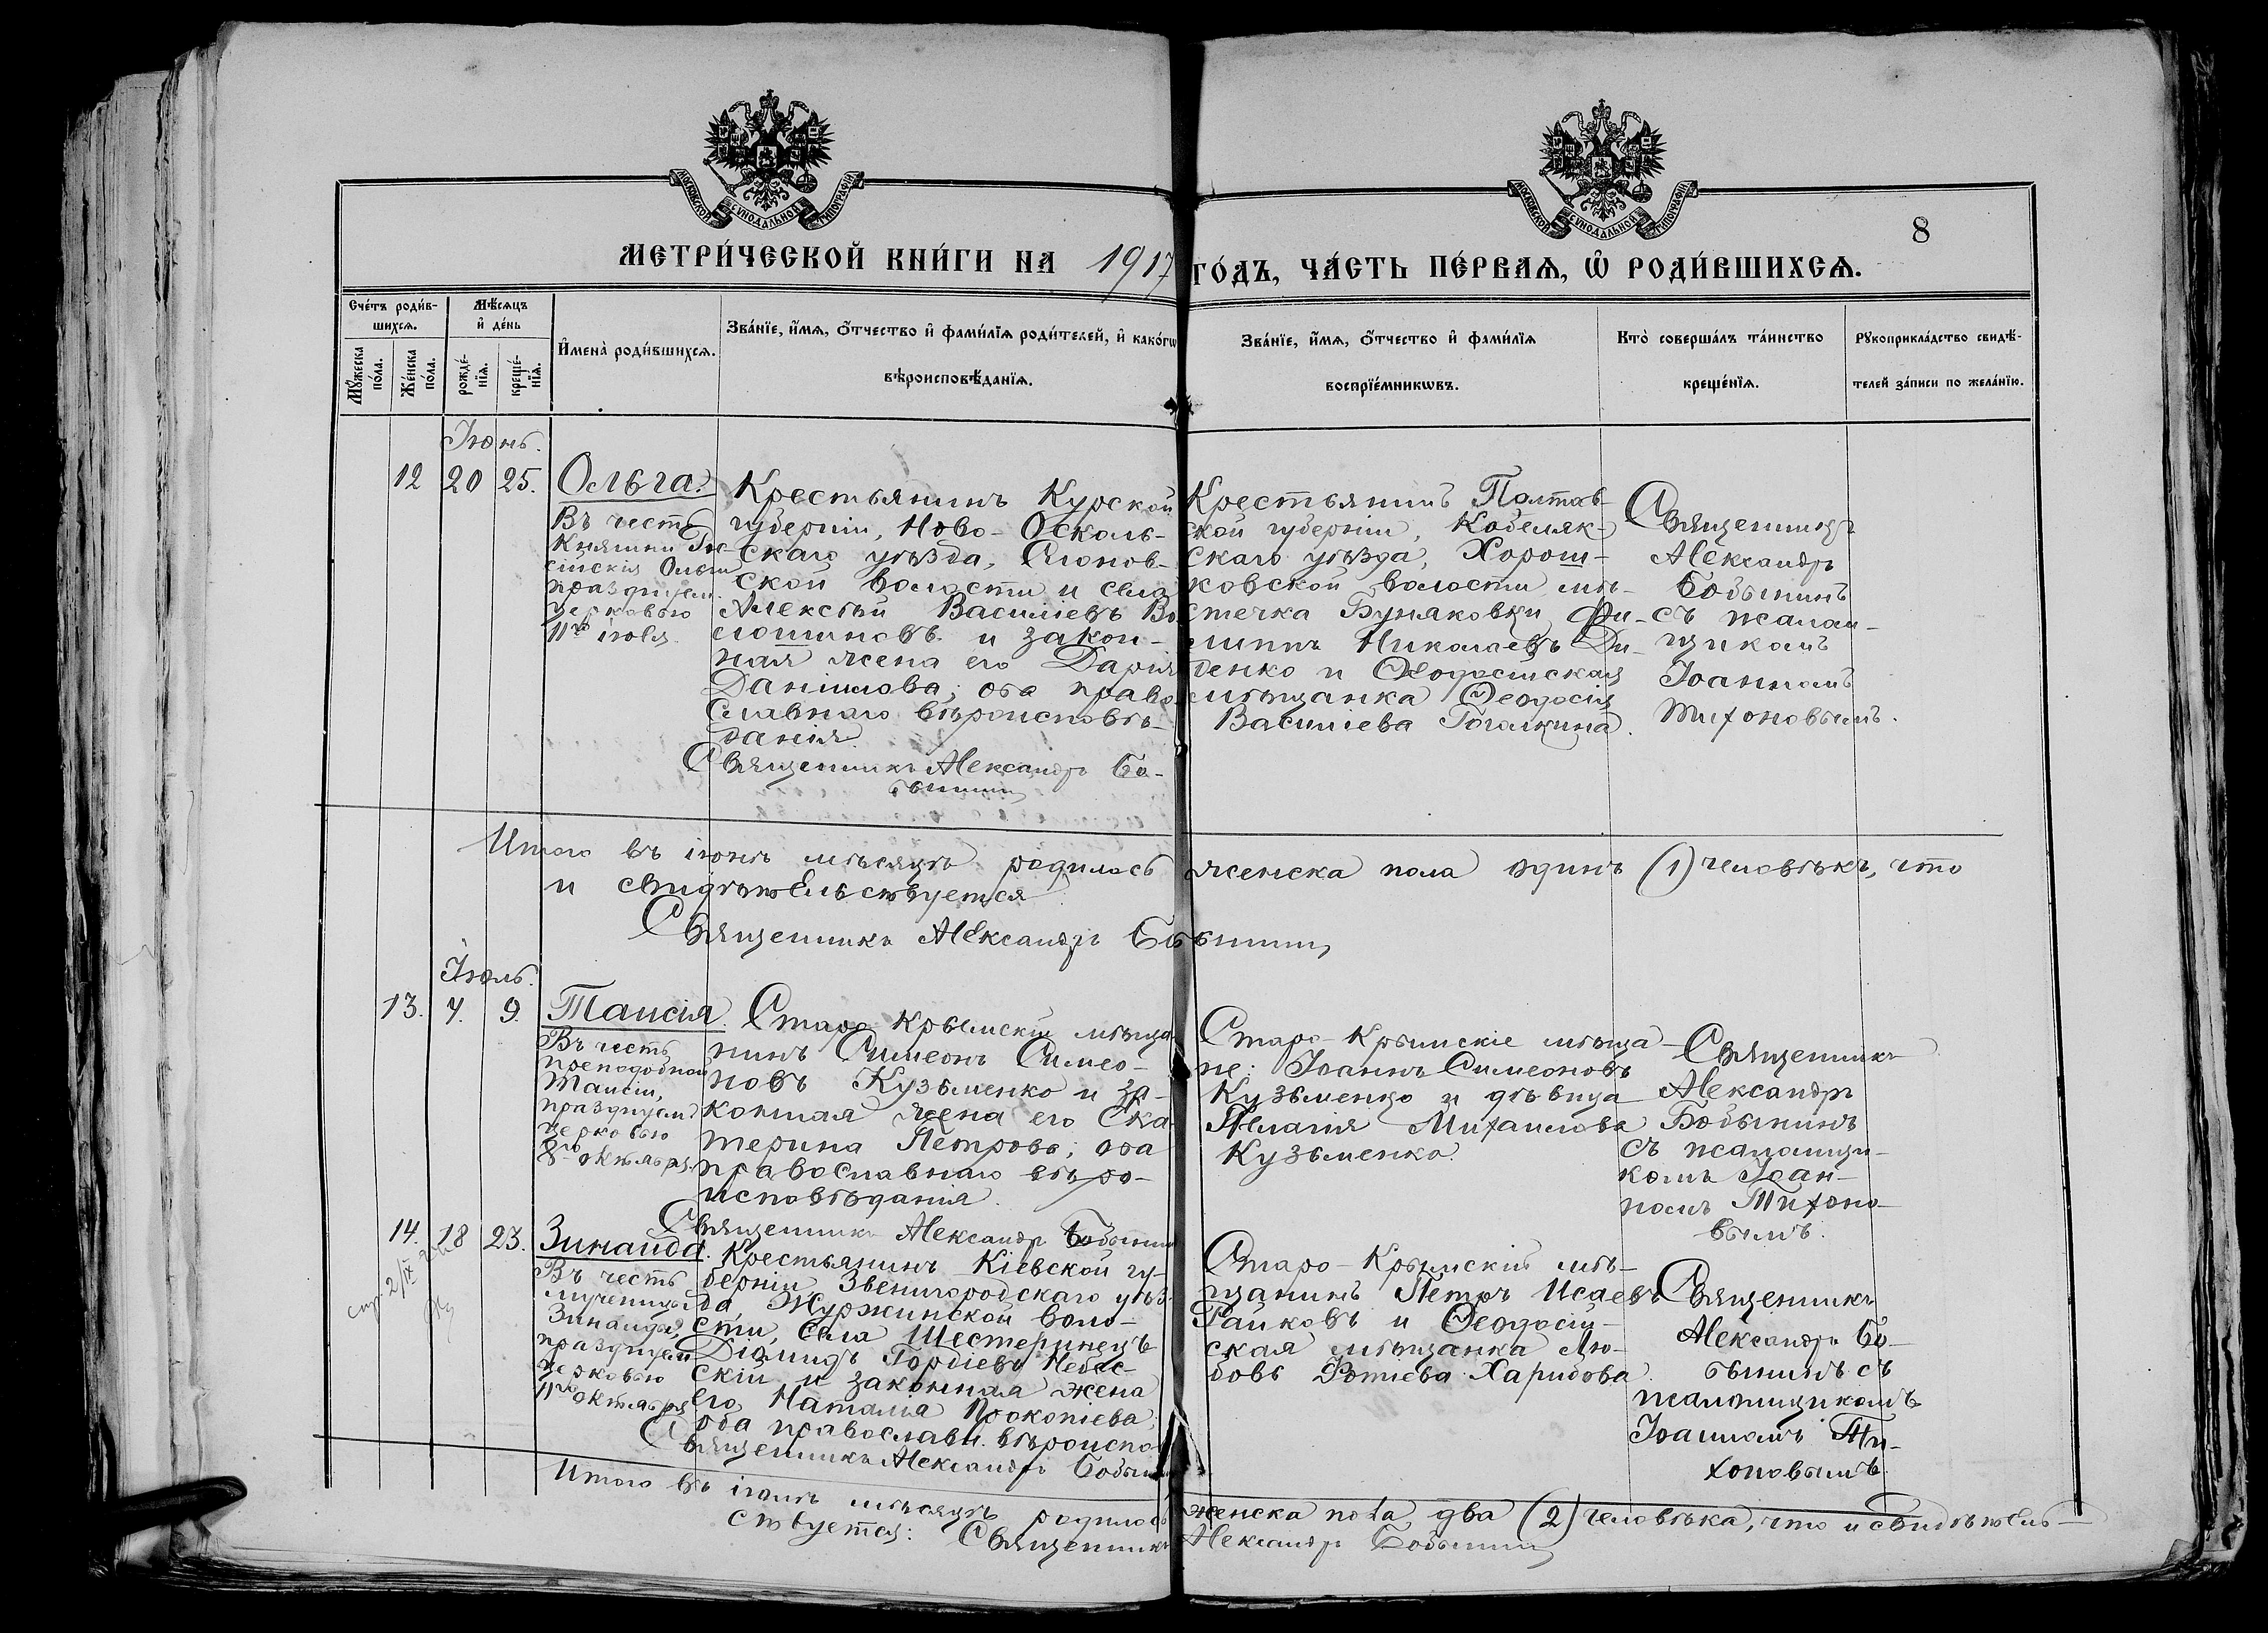 МОСКОВСКОЙ СѴНОДАЛЬНОЙ ТИПОГРАФІИ
МОСКОВСКОЙ СѴНОДАЛЬНОЙ ТИПОГРАФІИ
8
МЕТРИ́ЧЕСКОЙ КНИ́ГИ НА 1917 ГО́ДЪ, ЧА́СТЬ ПЕ́РВАѦ, Ѿ РОДИ́ВШИХСѦ.
Сче́тъ роди́в-
шихсѧ.
Мꙋ́жеска по́ла.
Же́нска по́ла.
Мѣ́сѧцъ
и҆ де́нь
рожде́-
нїѧ.
креще́-
нїѧ.
И҆мена̀ роди́вшихсѧ.
Зва́нїе, и҆́мѧ, ѻ҆́тчество и҆ фами́лїѧ роди́телей, и҆ како́гѡ
вѣроисповѣ́данїѧ.
Зва́нїе, и҆́мѧ, ѻ҆́тчество и҆ фами́лїѧ
воспрїе́мникѡвъ.
Кто̀ соверша́лъ та́инство
креще́нїѧ.
Рꙋкоприкла́дство свидѣ́-
телей за́писи по жела́нїю.
Іюнь.
12 20 25. Ольга.
Въ честь
Княгини Рос-
сійскія Ольги
празднуем.
церковью
11го іюля.
Крестьянинъ Курской
губерніи, Ново-Осколь-
скаго уѣзда,
ской волости и села
Алексѣй Васильевъ Во-
лошиновъ и закон-
ная жена его Дарія
Даніилова; оба право-
славнаго вѣроисповѣ-
данія.
Священникъ Александръ Бо-
бынин
Крестьянинъ Полтав-
ской губерніи, Кобеляк-
скаго уѣзда, Хорош-
ковской волости мѣ-
стечка Бунаковки Фи-
липпъ Николаевъ Ди-
денко и Ѳеодосійская
мѣщанка Ѳеодосія
Васильева Гогалкина.
Священникъ
Александръ
Бобынинъ
съ псалом-
щикомъ
Іоанномъ
Тихоновымъ.
Итого въ іюнѣ мѣсяцѣ родилось женска пола одинъ (1) человѣкъ, что
и свидѣтельствуется.
Священникъ Александръ Бобынин
Іюль.
13. 4. 9. Таисія.
Въ честь
преподобной
Таисіи,
празднуем.
церковью
8го октября.
Старо-Крымскій мѣща-
нинъ Симеонъ Симео-
новъ Кузьменко и за-
конная жена его Ека-
терина Петрова; оба
православнаго вѣро-
исповѣданія.
Священникъ Александръ Бобынин
Старо-Крымскіе мѣща-
не: Іоаннъ Симеоновъ
Кузьменко и дѣвица
Пелагія Михаилова
Кузьменко.
Священникъ
Александръ
Бобынинъ
съ псаломщи-
комъ Іоан-
номъ Тихоно-
вымъ.
14. 18 23. Зинаида.
Въ честь
мученицы
Зинаиды,
празднуем.
церковью
11го октября
Крестьянинъ Кіевской гу-
берніи Звенигородскаго уѣз-
да, Журжинской воло-
сти, села Шестеринецъ
Діомидъ Гордіевъ Небес-
скій и законная жена
его Наталья Прокопіева,
оба православн. вѣроиспо-
Священникъ Александръ Бобынин
Старо-Крымскій мѣ-
щанинъ Петръ Исаевъ
Райковъ и Ѳеодосій-
ская мѣщанка Лю-
бовь Фотіева Харибова.
Священникъ
Александръ Бо-
бынинъ съ
псаломщикомъ
Іоанномъ Ти-
хоновымъ.
Итого въ іюлѣ мѣсяцѣ родилось женска пола два (2) человѣка, что и свидѣтель-
ствуется: Священникъ Александръ Бобынин